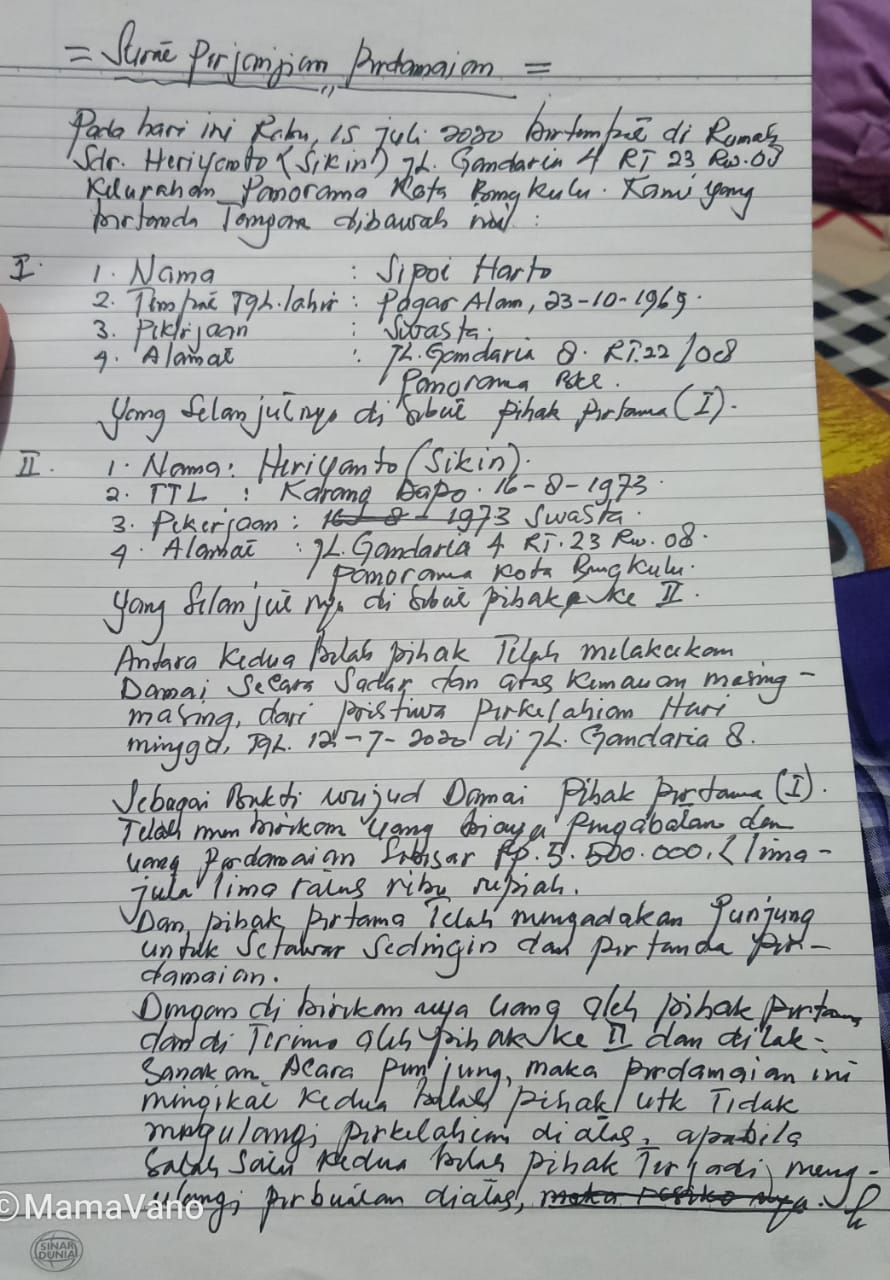 = Surat Perjanjian Perdamaian =
Pada hari ini Rabu, 15 Juli 2020 bertempat di Rumah
Sdr. Heriyanto (Sikin) JL. Gandaria 4 RT 23 Rw. 08
Kelurahan Panorama Kota Bengkulu. Kami yang
bertanda Tangan dibawah ini :
I. 1. Nama : Sipoi Harto
2. Tempat Tgl. lahir : Pagar Alam, 23-10-1969.
3. Pekerjaan : Swasta.
4. Alamat : JL. Gandaria 8. RT.22/08
Panorama Bkl.
Yang Selanjutnya di Sebut pihak Pertama (I).
II. 1. Nama : Heriyanto (Sikin).
2. TTL : Karang Dapo. 16-8-1973.
3. Pekerjaan : 16-8-1973 Swasta.
4. Alamat : JL. Gandaria 4 RT. 23 Rw. 08.
Panorama Kota Bengkulu.
Yang Selanjutnya di Sebut pihak ke II.
Antara Kedua belah pihak Telah melakukan
Damai Secara Sadar dan atas Kemauan masing-
masing, dari peristiwa Perkelahian Hari
minggu, Tgl. 12-7-2020 di JL. Gandaria 8.
Sebagai Bukti wujud Damai Pihak pertama (I).
Telah memberikan Uang biaya Pengobatan dan
uang Perdamaian Sebesar Rp. 5.500.000, (lima-
juta lima ratus ribu rupiah.
Dan, pihak pertama Telah mengadakan Punjung
untuk Setawar Sedingin dan pertanda per-
damaian.
Dengan di berikannya Uang oleh pihak Pertama
dan di Terima oleh pihak ke II dan dilak-
Sanakan Acara Punjung, maka perdamaian ini
mengikat Kedua belah pihak utk Tidak
mengulangi perkelahian diatas, apabila
Salah Satu Kedua belah pihak Terjadi meng-
ulangi perbuatan diatas, maka resiko nya.
© MamaVano
SINAR
DUNIA